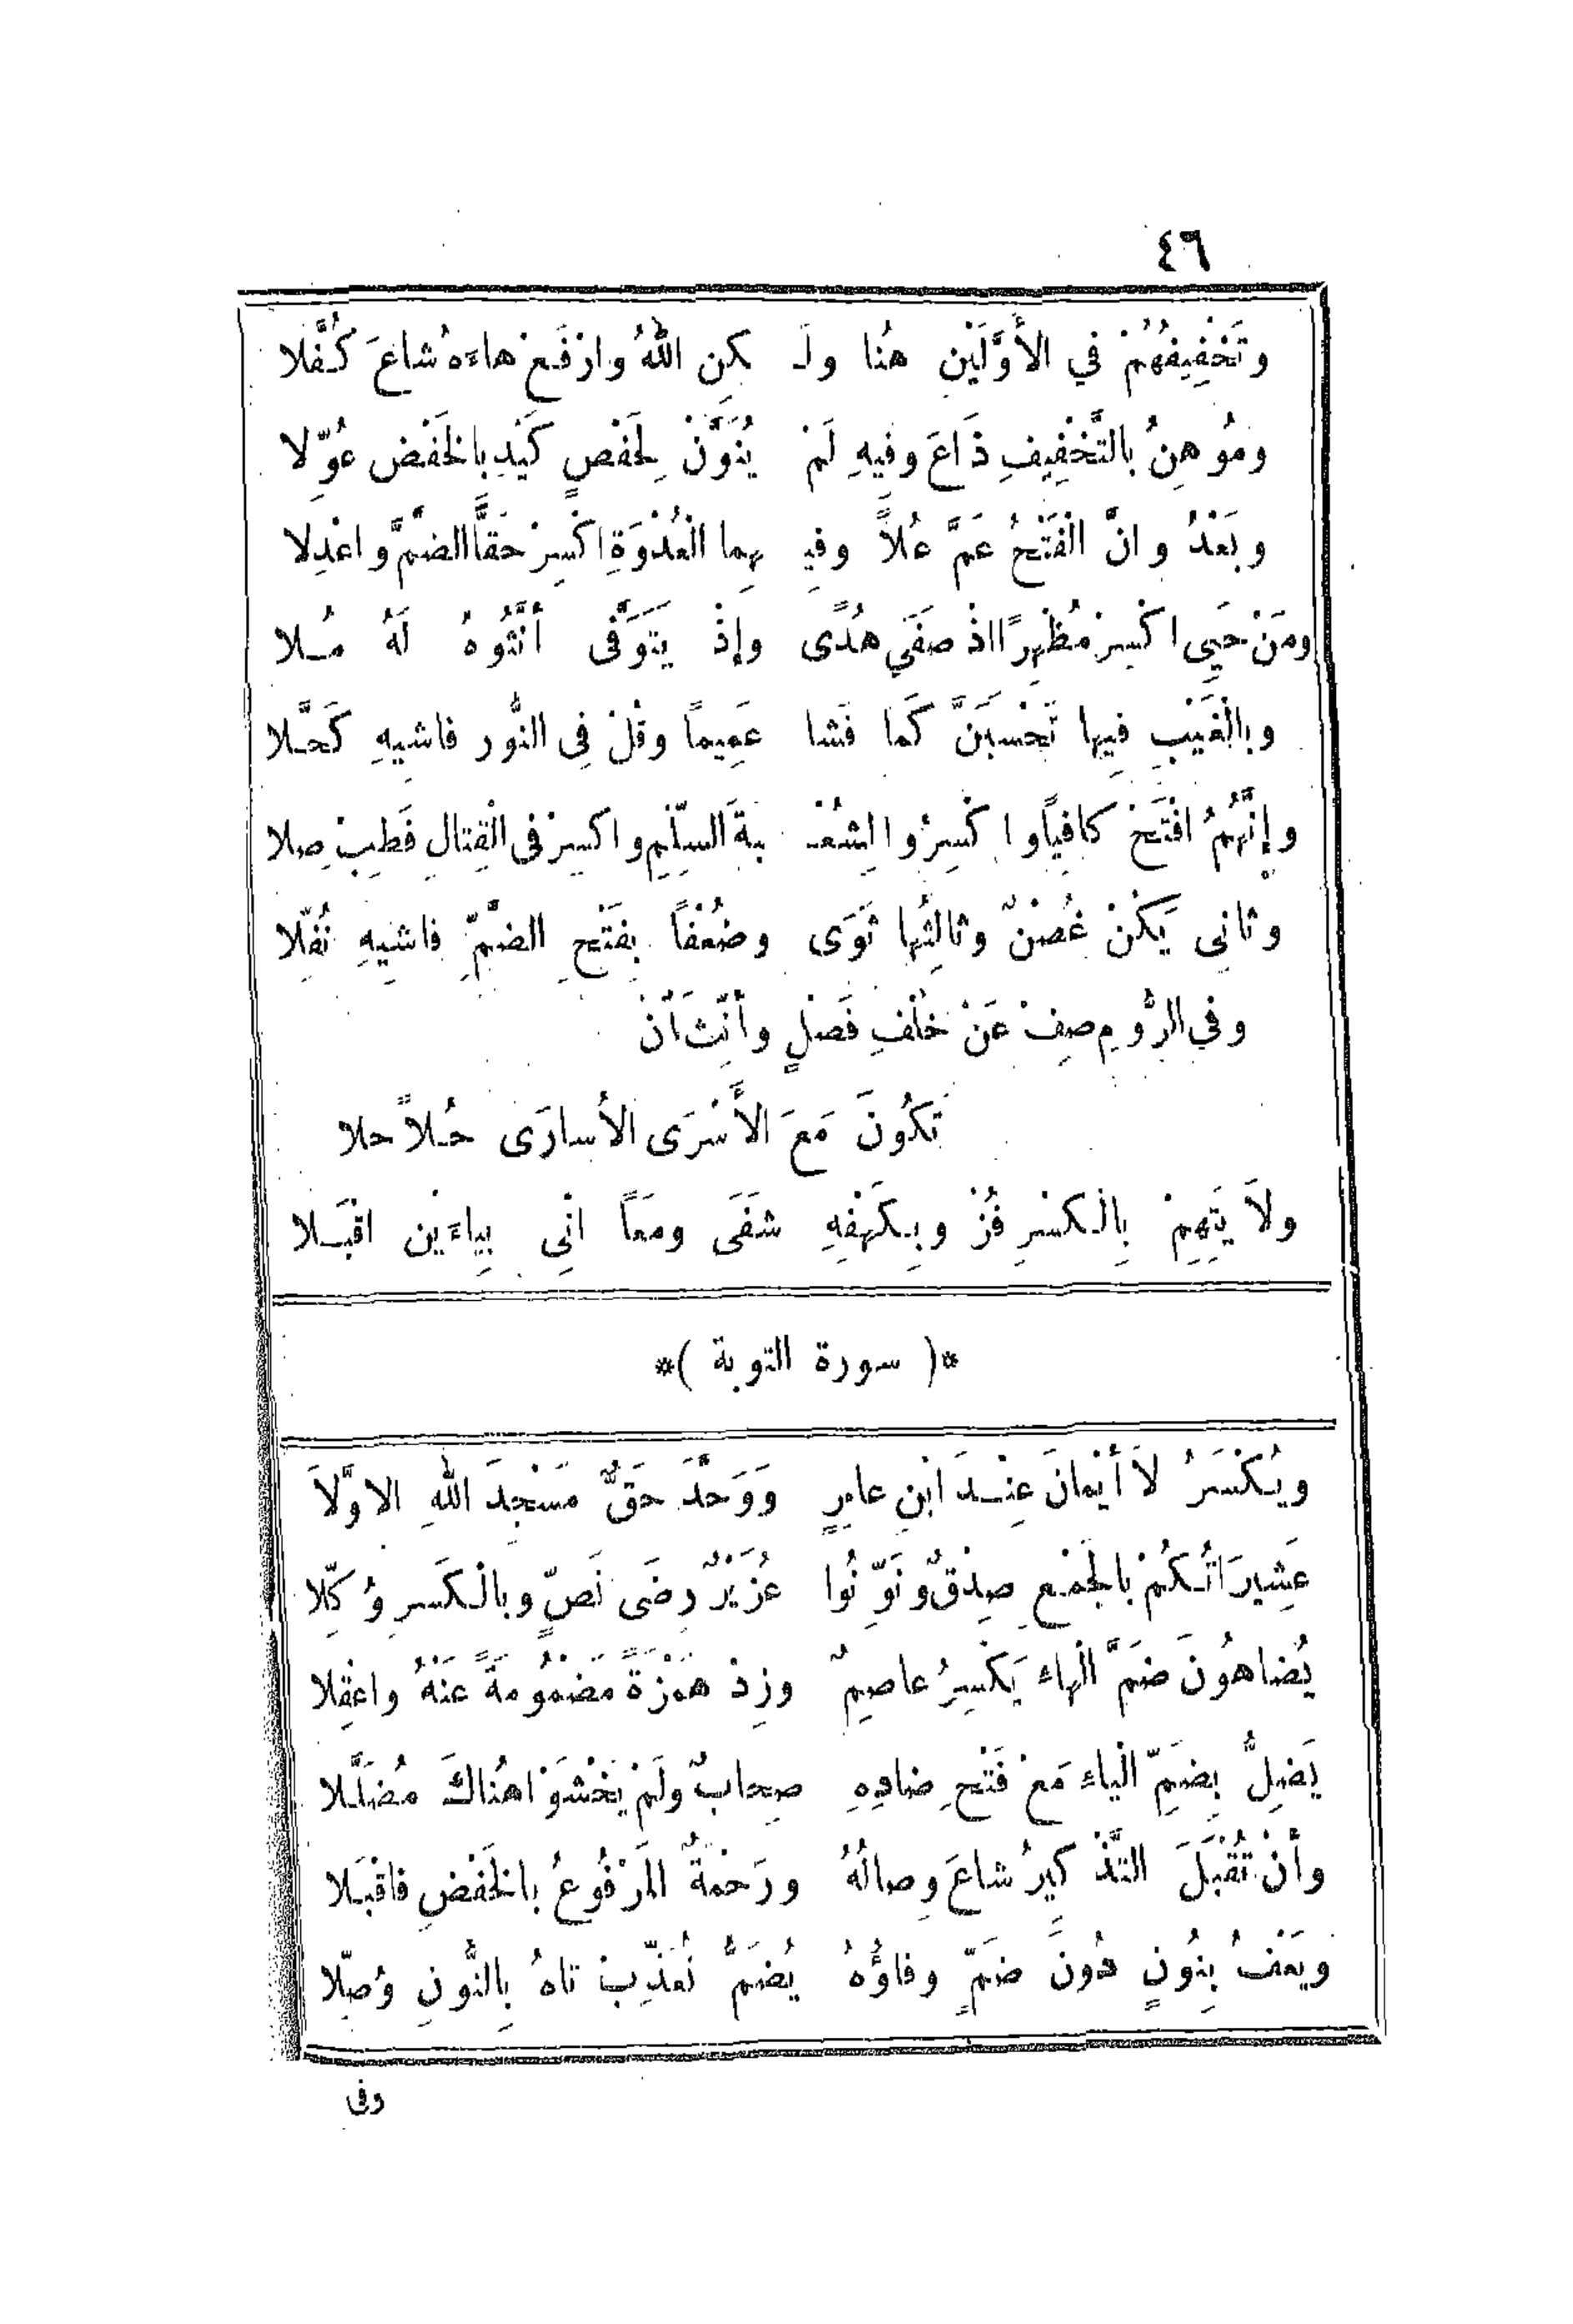 ٤٦
وتَخْفِيفُهُمْ في الأَوَّلَيْنِ هُنا ولَـ كِنِ اللهُ وارْفَعْ هاءَهُ شاعَ كُفَّلا
ومُوهِنُ بالتَّخْفِيفِ ذَاعَ وفِيهِ لَمْ يُنَوَّنْ لِحَفْصٍ كَيْدِ بالخَفْضِ عُوِّلا
وبَعْدُ وانَّ الْفَتْحُ عَمَّ عُلاً وفِيـ ـهِما الْعُدْوَةِ اكْسِرْ حَقًّا الضَّمَّ واعْدِلا
ومَنْ حَيِيَ اكْسِرْ مُظْهِرًا اذْ صَفَى هُدًى وإِذْ يَتَوَفَّى أَنِّثُوهُ لَهُ مُـلا
وبالْغَيْبِ فِيها تَحْسَبَنَّ كَما فَشا عَمِيماً وقُلْ فِى النُّورِ فاشِيهِ كَحَّـلا
وإِنَّهُمُ افْتَحْ كافِياً واكْسِرُوا لِشُعْـ بَةَ السَّلْمِ واكْسِرْ فى الْقِتالِ فَطِبْ صِلا
وثانِى يَكُنْ غُصْنٌ وثالِثُها ثَوَى وضُعْفاً بِفَتْحِ الضَّمِّ فاشِيهِ نُفِّلا
وفي الرُّومِ صِفْ عَنْ خُلْفِ فَصْلٍ وأَنِّثْ أَنْ
تَكُونَ مَعَ الأَسْرَى الأُسارَى حُـلاً حلا
ولاَ يَتِهِمْ بِالْكَسْرِ فُزْ وبِـكَهْفِهِ شَفَى ومَعاً انِّى بِياءَيْنِ اقْبَـلا
*( سورة التوبة )*
ويُـكْسَرُ لاَ أَيْمانَ عِنْـدَ ابْنِ عامِرٍ وَوَحَّدَ حَقٌّ مَسْجِدَ اللهِ الاوَّلاَ
عَشِيرَاتُـكُمْ بالجَمْعِ صِدْقٌ ونَوِّنُوا عُزَيْرٌ رِضَى نَصٍّ وبالْـكَسرِ وُكِّلا
يُضاهُونَ ضَمَّ الْهاءِ يَكْسِرُ عاصِمٌ وزِدْ هَمْزَةً مَضْمُومَةً عَنْهُ واعْقِلا
يَضِلُّ بِضَمِّ الْياءِ مَعْ فَتْحِ ضادِهِ صِحابٌ ولَمْ يَخْشَوْا هُناكَ مُضَلَّلا
وأَنْ تُقْبَلَ التَّذْكِيرُ شاعَ وِصالُهُ ورَحْمَةٌ المَرْفُوعُ بالخَفْضِ فاقْبَـلا
ويَعْفُ بِنُونٍ دُونَ ضَمٍّ وفاؤُهُ يُضَمُّ تُعَذَّبْ تاهُ بِالنُّونِ وُصِّلا
وفى